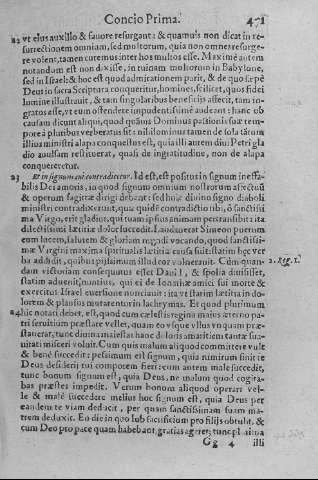 Concio Prima. 471
22 vt eius auxilio & fauore resurgant: & quamuis non dicat in re-
surrectionem omnium, sed multorum, quia non omnes resurge-
re volent, tamen curemus inter hos multos esse. Maximè autem
notandum est non dixisse, in ruinam multorum in Babylone,
sed in Israel: & hoc est quod admirationem parit, & de quo sæpè
Deus in sacra Scriptura conqueritur, homines, scilicet, quos fidei
lumine illustrauit, & tam singularibus beneficijs affecit, tam in-
gratos esse, vt eum offendere impudentissimè audeant: hanc ob
causam dicunt aliqui, quod quãuis Dominus passionis suæ tem-
pore à pluribus verberatus sit: nihilominus tamen de sola
illius ministri alapa conquestus est, quia illi autem diu Petri gla
dio auulsam restituerat, quasi de ingratitudine, non de alapa
conqueretur.
23 Et in signum cui contradicetur. Id est, est positus in signum ineffa-
bilis Dei amoris, in quod signum omnium nostrorum affectuũ
& operum sagittæ dirigi debeant: sed huic diuino signo diaboli
ministri contradixerunt, quæ quidẽ contradictio tibi, ô sanctissi
ma Virgo, erit gladius, qui tuam ipsius animam pertransibit: ita di-
lectissimi lætitiæ dolor succedit. Laudauerat Simeon puerum
eum lucem, salutem & gloriam mundi vocando, quod sanctissi-
mæ Virgini maxima spiritualis lætitiæ causa fuit: statim hęc ver
ba addidit, quibus piissimum illud cor vulnerauit. Cùm quan- 2. Reg. 1.
dam victoriam consequutus esset Dauid, & spolia diuisisset,
statim aduenit nuntius, qui ei de Ionathæ amici sui morte &
exercitus Israel euersione nunciauit: ita vt statim lætitia in do-
lorem & plausus mutarentur in lachrymas. Et quod plurimum
24 hîc notari debet, est, quod cum cælestis regina maius æterno pa-
tri seruitium præstare vellet, quam eo vsque vllus vnquam præs-
titerat, tunc diuina maiestas hanc doloris amaritiem tantæ sua-
uitati misceri voluit. Cum quis malum aliquod committere vult
& benè succedit: pessimum est signum, quia nimirum sinit te
Deus desiderij tui compotem fieri: cum autem malè succedit,
tunc bonum signum est, quia Deus, ne malum quod cogita-
bas præstes impedit. Verum bonum aliquod operari vel-
le & malè succedere melius hoc signum est, quia Deus per
eandem te viam deducit, per quam sanctissimam suam ma-
trem deduxit. Eo die in quo Iob sacrificium pro filijs obtulit, &
cum Deo pro pace quam habebant, gratias ageret: tunc plurima
Gg 4 illi